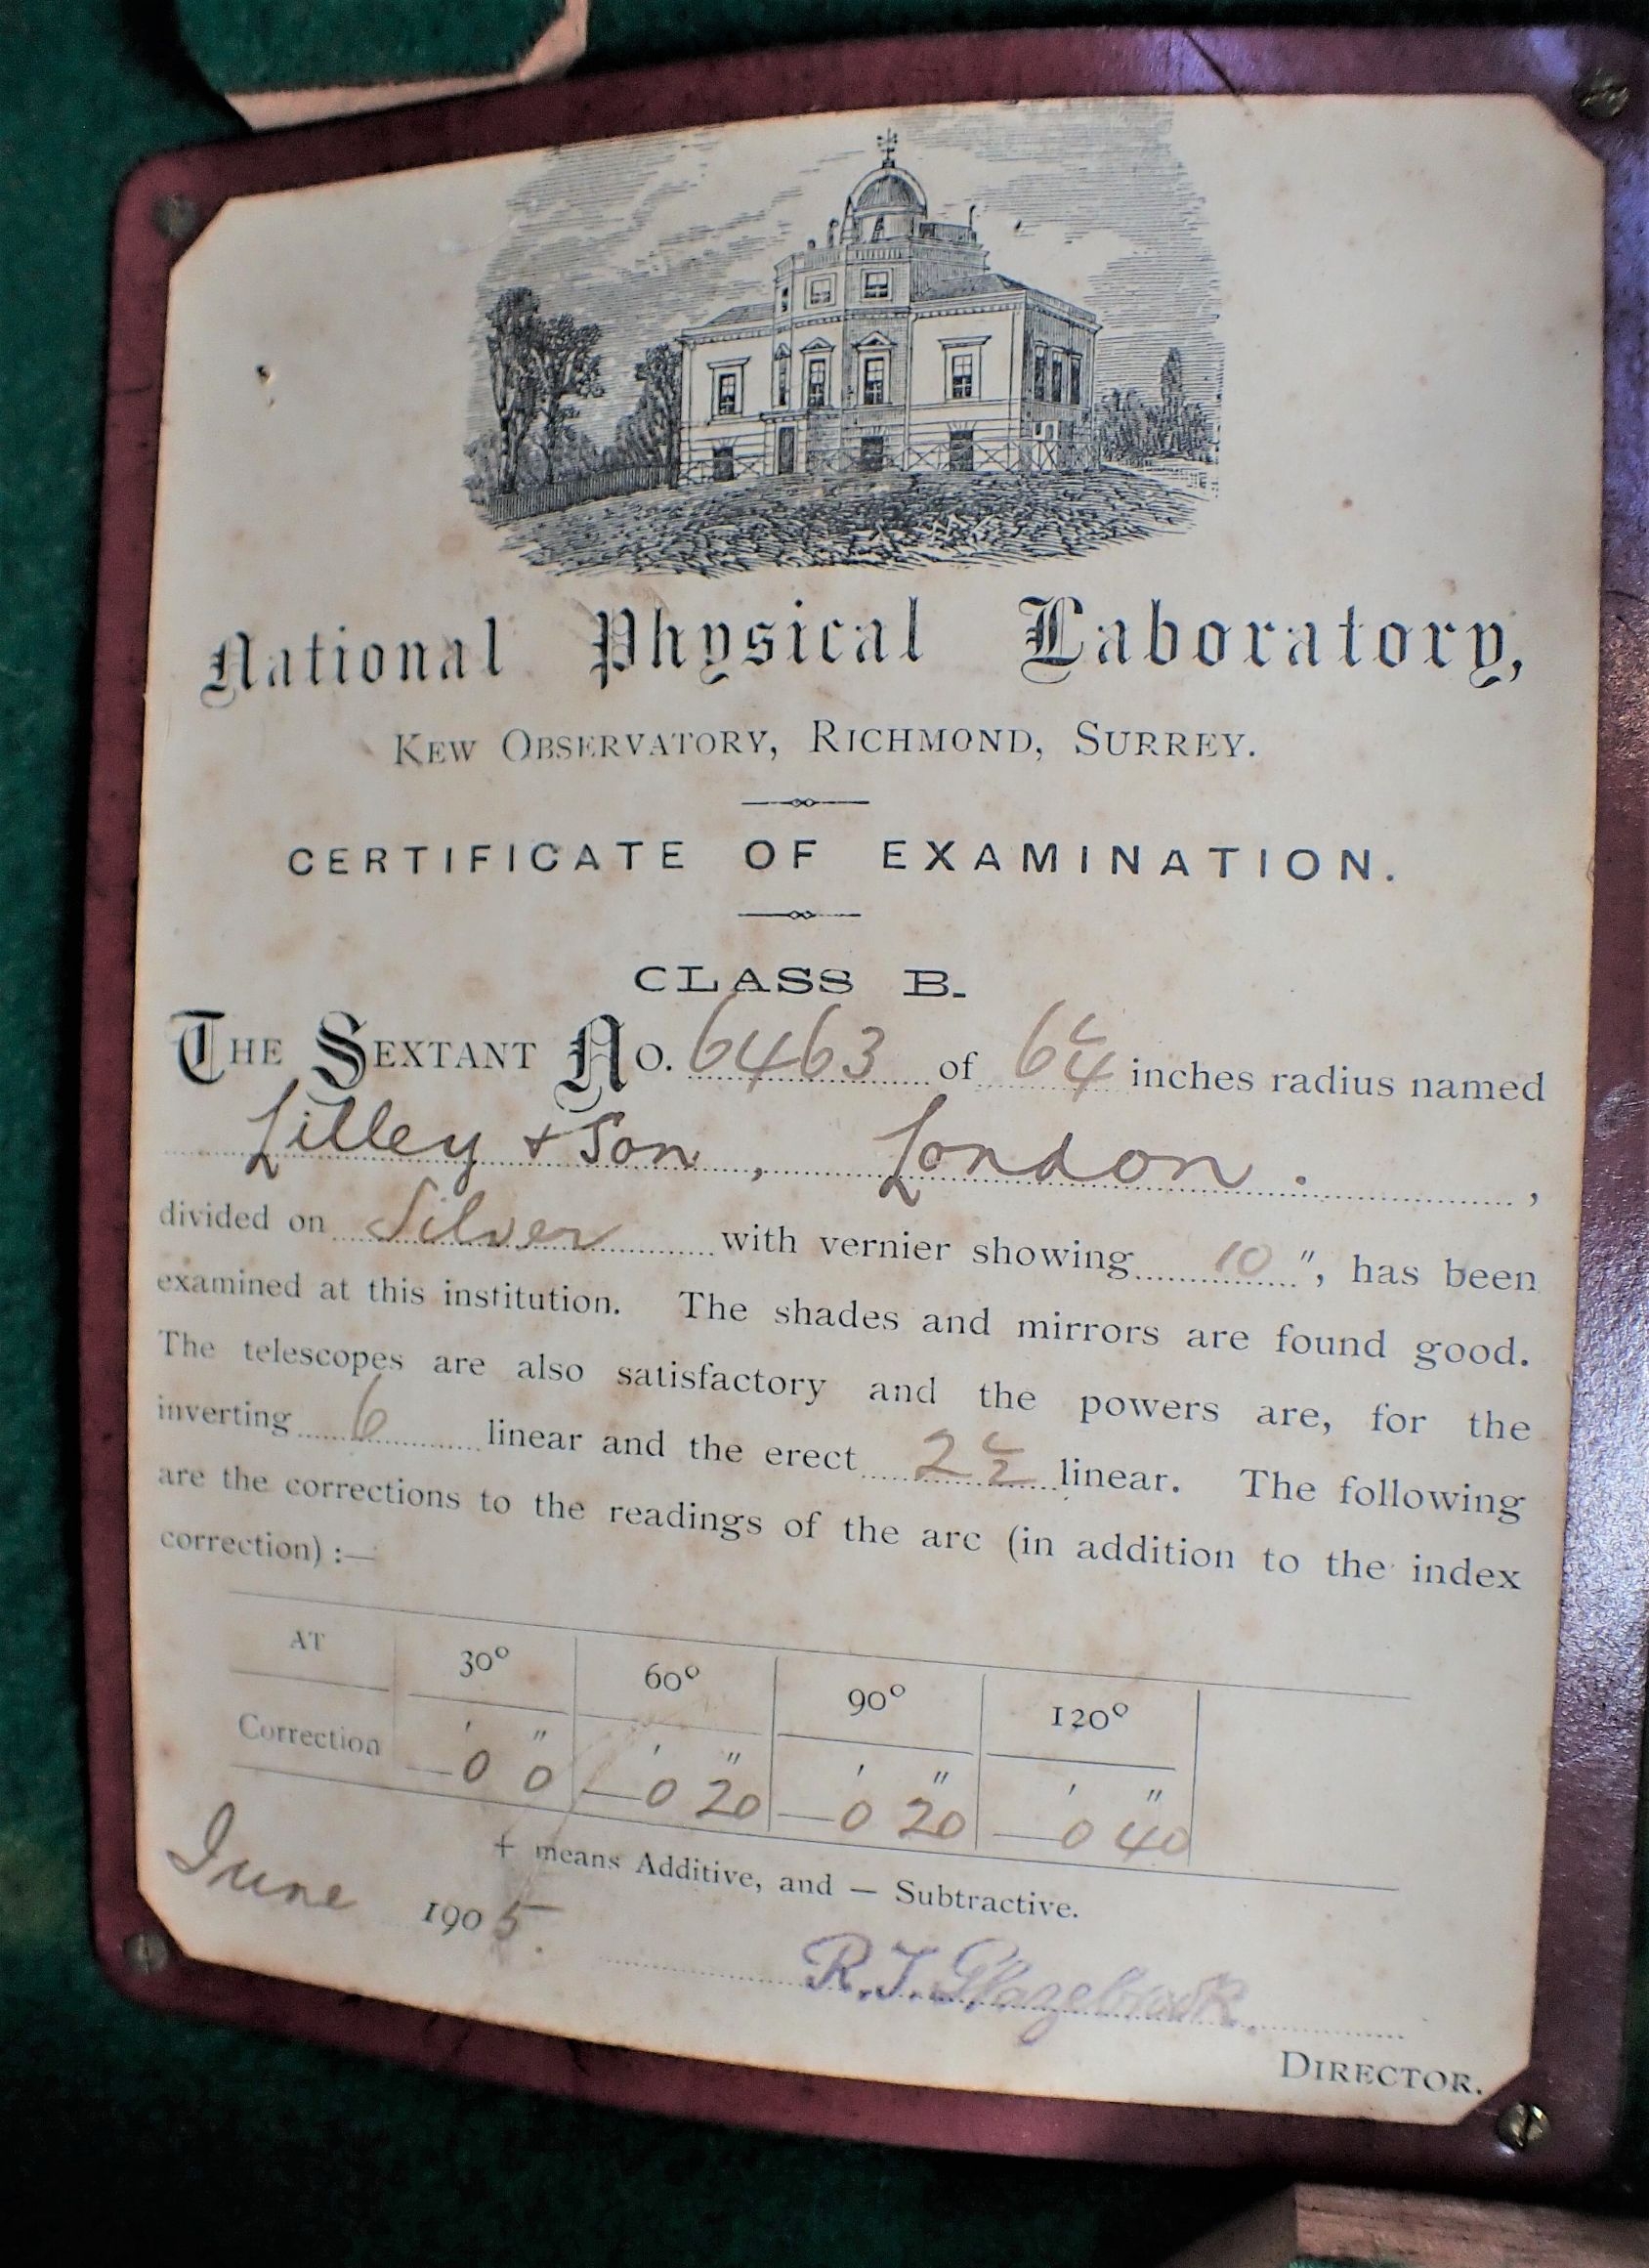 National Physical Laboratory,
KEW OBSERVATORY, RICHMOND, SURREY.
CERTIFICATE OF EXAMINATION.
CLASS B.
THE SEXTANT NO. 6463 of 6¼ inches radius named
Lilley + Son, London. ,
divided on Silver with vernier showing 10 ", has been
examined at this institution. The shades and mirrors are found good.
The telescopes are also satisfactory and the powers are, for the
inverting 6 linear and the erect 2½ linear. The following
are the corrections to the readings of the arc (in addition to the index
correction) :—
AT 30° 60° 90° 120°
Correction —0' 0" —0' 20" —0' 20" —0' 40"
+ means Additive, and — Subtractive.
June 1905.
R.T. Glazebrook.
DIRECTOR.